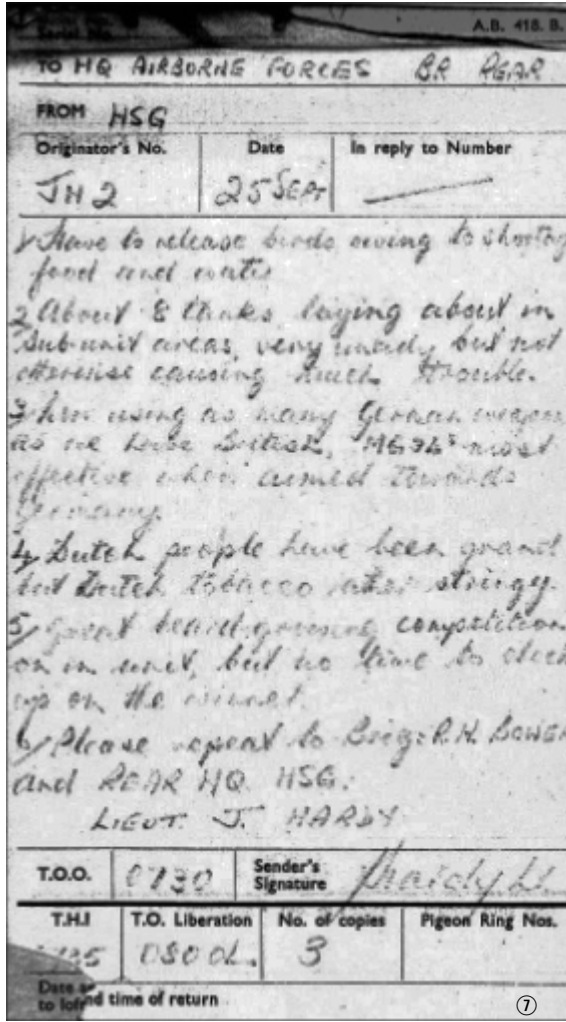 Serial No. A.B. 418. B.
TO HQ AIRBORNE FORCES BR REAR
FROM HSG
Originator's No. Date In reply to Number
JH 2 25 SEPT
1/ Have to release birds owing to shortag
food and water
2/ About 8 tanks laying about in
sub-unit areas, very untidy but not
otherwise causing much trouble.
3/ Now using as many German weapon
as we have British, MG34s most
effective when aimed towards
Germany.
4/ Dutch people have been grand
but Dutch tobacco rather stringy.
5/ Great beard growing competition
on in unit, but no time to check
up on the winner.
6/ Please repeat to Brig: R.H. BOWER
and REAR HQ HSG.
LIEUT. J. HARDY
T.O.O. 0730 Sender's
Signature JHardy Lt.
T.H.I T.O. Liberation No. of copies Pigeon Ring Nos.
0800 3
to loft nd time of return
⑦